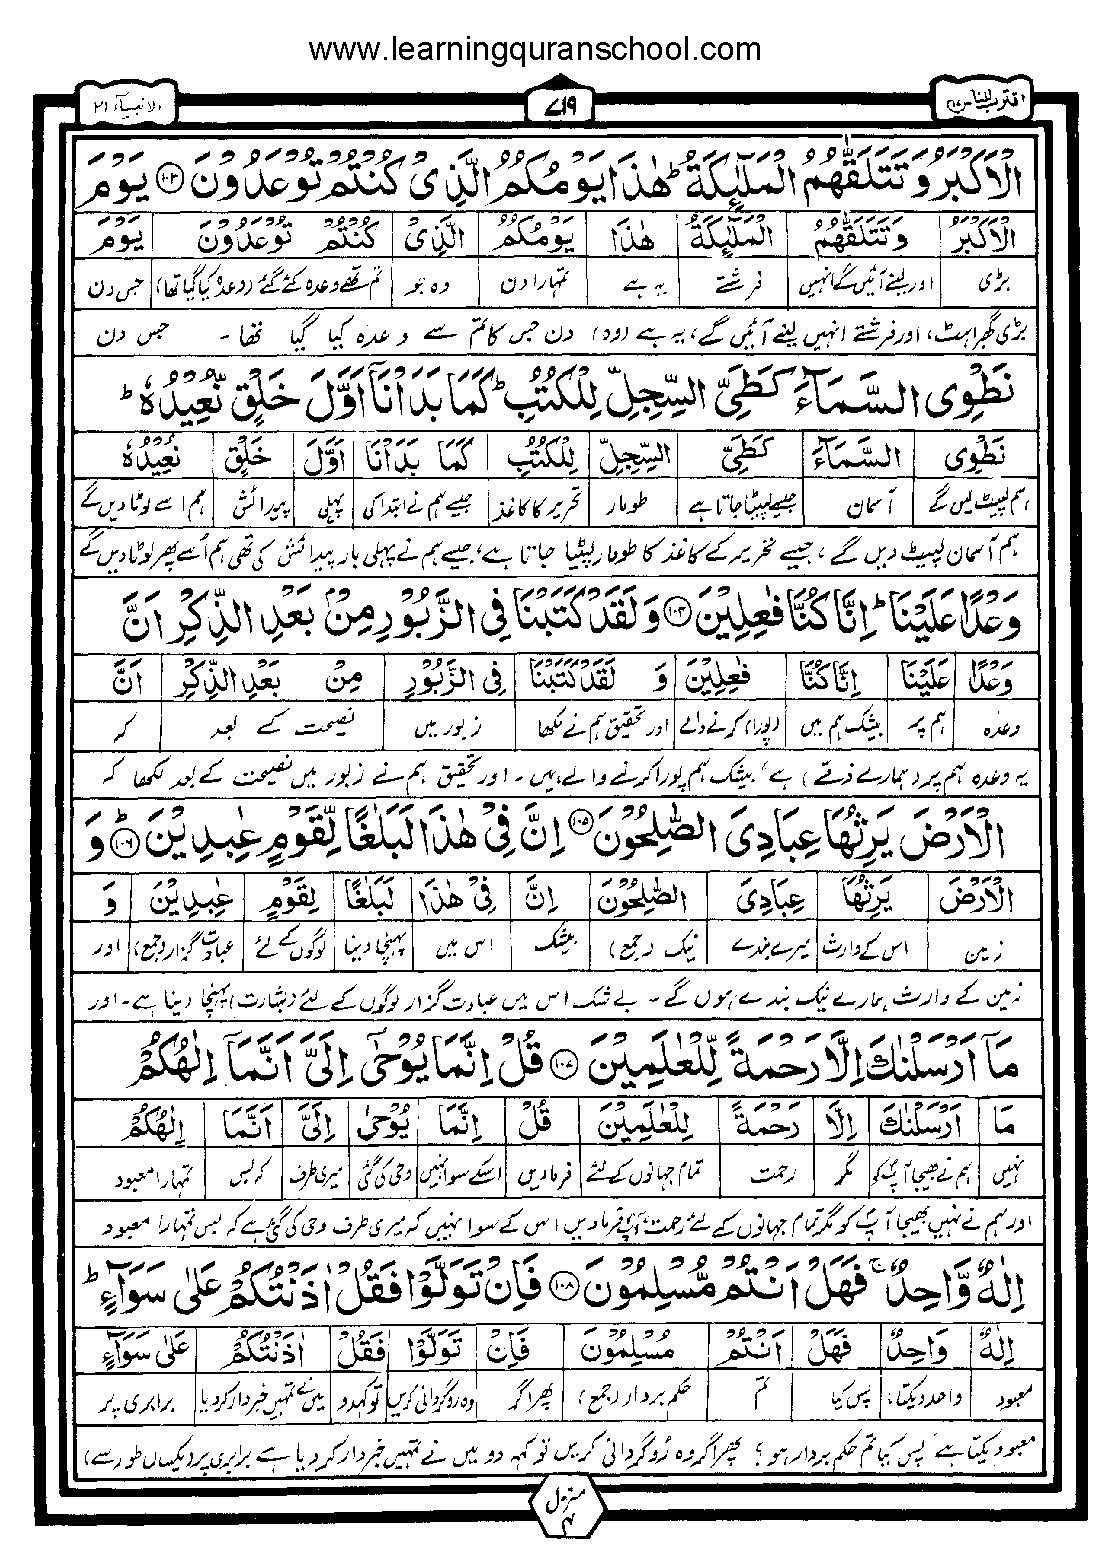 www.learningquranschool.com
اقترب للناس ١٧
٧١٩
الانبیآء ٢١
الْاَكْبَرُ وَتَتَلَقّٰىهُمُ الْمَلٰٓئِكَةُ ؕ هٰذَا يَوْمُكُمُ الَّذِىْ كُنْتُمْ تُوْعَدُوْنَ ﴿۱۰۳﴾ يَوْمَ
الْاَكْبَرُ وَتَتَلَقّٰىهُمُ الْمَلٰٓئِكَةُ هٰذَا يَوْمُكُمُ الَّذِىْ كُنْتُمْ تُوْعَدُوْنَ يَوْمَ
بڑی اور لینے آئیں گے انہیں فرشتے یہ ہے تمہارا دن وہ جو تم تھے وعدہ کئے گئے (وعدہ کیا گیا تھا) جس دن
بڑی گھبراہٹ، اور فرشتے انہیں لینے آئیں گے، یہ ہے (وہ) دن جس کا تم سے وعدہ کیا گیا تھا۔ جس دن
نَطْوِى السَّمَآءَ كَطَىِّ السِّجِلِّ لِلْكُتُبِ ؕ كَمَا بَدَاْنَاۤ اَوَّلَ خَلْقٍ نُّعِيْدُهٗ ؕ
نَطْوِى السَّمَآءَ كَطَىِّ السِّجِلِّ لِلْكُتُبِ كَمَا بَدَاْنَا اَوَّلَ خَلْقٍ نُعِيْدُهٗ
ہم لپیٹ لیں گے آسمان جیسے لپیٹا جاتا ہے طومار تحریر کا کاغذ جیسے ہم نے ابتدا کی پہلی پیدائش ہم اسے لوٹا دیں گے
ہم آسمان لپیٹ دیں گے، جیسے تحریر کے کاغذ کا طومار لپٹیا جاتا ہے، جیسے ہم نے پہلی بار پیدائش کی تھی ہم اُسے پھر لوٹا دیں گے
وَعْدًا عَلَيْنَا ؕ اِنَّا كُنَّا فٰعِلِيْنَ ﴿۱۰۴﴾ وَلَقَدْ كَتَبْنَا فِى الزَّبُوْرِ مِنْۢ بَعْدِ الذِّكْرِ اَنَّ
وَعْدًا عَلَيْنَا اِنَّا كُنَّا فٰعِلِيْنَ وَ لَقَدْ كَتَبْنَا فِى الزَّبُوْرِ مِنْ بَعْدِ الذِّكْرِ اَنَّ
وعدہ ہم پر بیشک ہم ہیں (پورا) کرنے والے اور تحقیق ہم نے لکھا زبور میں نصیحت کے بعد کہ
یہ وعدہ ہم پر (ہمارے ذمے) ہے، بیشک ہم پورا کرنے والے ہیں۔ اور تحقیق ہم نے زبور میں نصیحت کے بعد لکھا کہ
الْاَرْضَ يَرِثُهَا عِبَادِىَ الصّٰلِحُوْنَ ﴿۱۰۵﴾ اِنَّ فِىْ هٰذَا لَبَلٰغًا لِّقَوْمٍ عٰبِدِيْنَ ؕ﴿۱۰۶﴾ وَ
الْاَرْضَ يَرِثُهَا عِبَادِىَ الصّٰلِحُوْنَ اِنَّ فِىْ هٰذَا لَبَلٰغًا لِقَوْمٍ عٰبِدِيْنَ وَ
زمین اس کے وارث میرے بندے نیک (جمع) بیشک اس میں پہنچا دینا لوگوں کے لئے عبادت گزار (جمع) اور
زمین کے وارث ہمارے نیک بندے ہوں گے۔ بے شک اس میں عبادت گزار لوگوں کے لئے (بشارت) پہنچا دینا ہے۔ اور
مَاۤ اَرْسَلْنٰكَ اِلَّا رَحْمَةً لِّلْعٰلَمِيْنَ ﴿۱۰۷﴾ قُلْ اِنَّمَا يُوْحٰۤى اِلَىَّ اَنَّمَاۤ اِلٰهُكُمْ
مَا اَرْسَلْنٰكَ اِلَّا رَحْمَةً لِلْعٰلَمِيْنَ قُلْ اِنَّمَا يُوْحٰى اِلَىَّ اَنَّمَا اِلٰهُكُمْ
نہیں ہم نے بھیجا آپ کو مگر رحمت تمام جہانوں کے لئے فرما دیں اسکے سوا نہیں وحی کی گئی میری طرف کہ بس تمہارا معبود
اور ہم نے نہیں بھیجا آپ کو مگر تمام جہانوں کے لئے رحمت، آپ فرما دیں اس کے سوا نہیں کہ میری طرف وحی کی گئی ہے کہ بس تمہارا معبود
اِلٰهٌ وَّاحِدٌ ۚ فَهَلْ اَنْتُمْ مُّسْلِمُوْنَ ﴿۱۰۸﴾ فَاِنْ تَوَلَّوْا فَقُلْ اٰذَنْتُكُمْ عَلٰى سَوَآءٍ ؕ
اِلٰهٌ وَاحِدٌ فَهَلْ اَنْتُمْ مُسْلِمُوْنَ فَاِنْ تَوَلَّوْا فَقُلْ اٰذَنْتُكُمْ عَلٰى سَوَآءٍ
معبود واحد (یکتا) پس کیا تم حکم بردار (جمع) پھر اگر وہ روگردانی کریں تو کہدو میں نے تمہیں خبردار کر دیا برابری پر
معبود یکتا ہے پس کیا تم حکم بردار ہو؟ پھر اگر وہ رُوگردانی کریں تو کہہ دو میں نے تمہیں خبردار کر دیا ہے برابری پر (یکساں طور سے)
منزل ۴